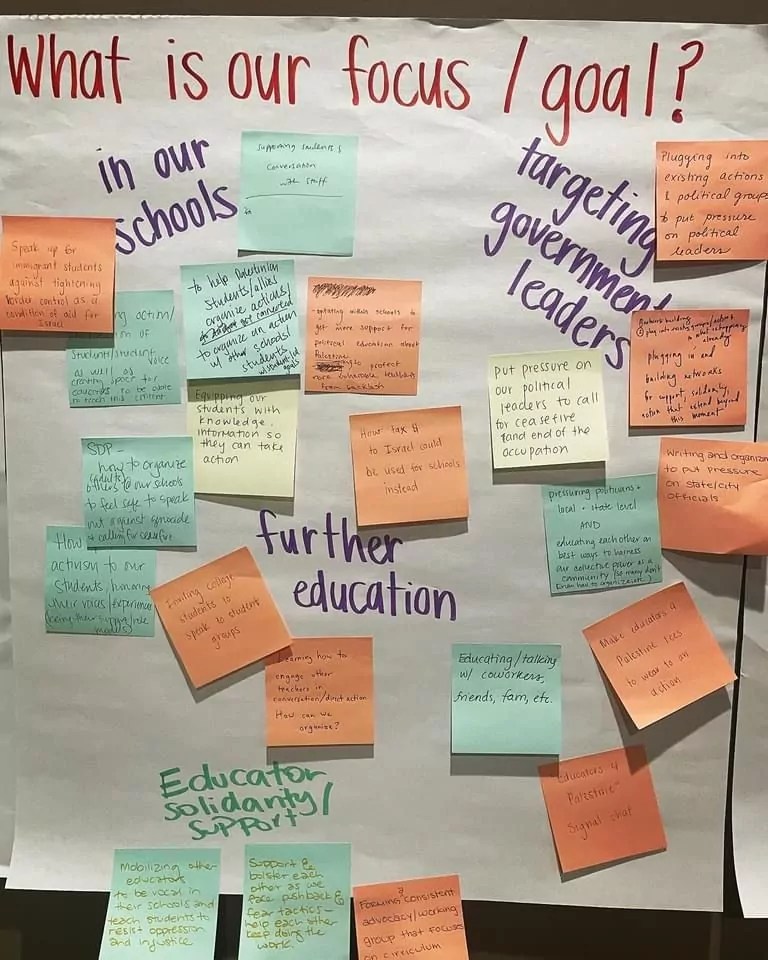 What is our focus / goal?
in our
schools
Supporting students &
Conversation
with staff
targeting
government
leaders
Plugging into
existing actions
& political groups
to put pressure
on political
leaders
Speak up for
immigrant students
against tightening
border control as a
condition of aid for
Israel
action/
of
Student/student voice
as well as
creating space for
educators to be able
to teach this content
to help Palestinian
students/allies
organize actions/
get connected
to organize an action
w/ other schools/
students
within schools to
get more support for
political education about
Palestine
to protect
more vulnerable
from backlash
building
plugging in and
building networks
for support, solidarity,
action that extend beyond
this moment
put pressure on
our political
leaders to call
for ceasefire
and end of the
occupation
Equipping our
students with
knowledge.
information so
they can take
action
How tax $
to Israel could
be used for schools
instead
SDP-
how to organize
(adults)
others @ our schools
to feel safe to speak
out against genocide
& calling for ceasefire
Writing and organizing
to put pressure
on state/city
officials
pressuring politicians +
local + state level
AND
educating each other on
best ways to harness
our collective power as a
community (so many don't
know how to organize etc.)
How
activism to our
students/honoring
their voices/experiences
further
education
Inviting college
students to
speak to student
groups
Make educators 4
Palestine tees
to wear to an
action
Learning how to
engage other
teachers in
conversation/direct action
How can we
organize?
Educating/talking
w/ coworkers,
friends, fam, etc.
"Educators 4
Palestine"
Signal chat
Educator
solidarity/
support
Mobilizing other
educators
to be vocal in
their schools and
teach students to
resist oppression
and injustice
Support &
bolster each
other as we
face pushback &
fear tactics-
help each other
keep doing the
work.
Forming consistent
advocacy/working
group that focuses
on curriculum